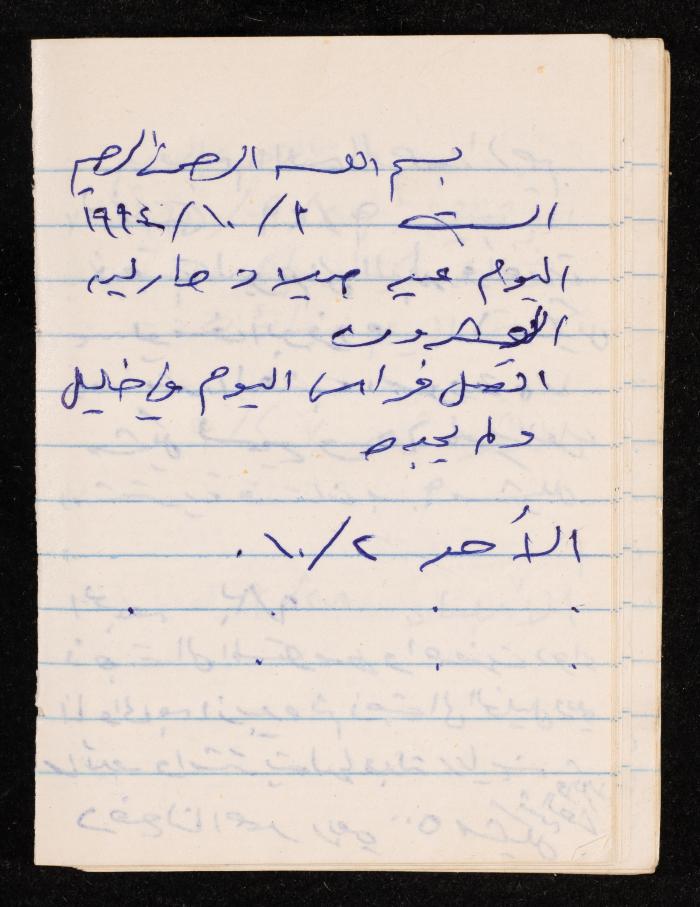 بسم الله الرحمن الرحيم
السبت ١/١٠/١٩٩٤
اليوم عيد ميلاد مارلين
العشرون
اتصل فراس اليوم في خليل
ولم يجده
الأحد ٢/١٠.